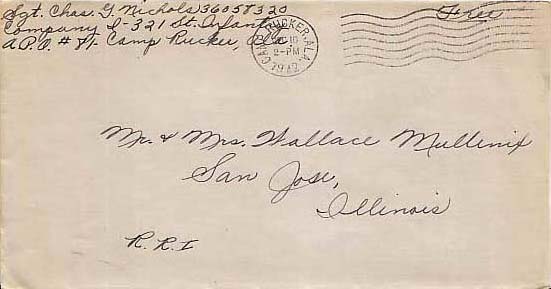 Sgt. Chas. G Nichols 36058320
Company I - 321 St. Infantry
A.P.O. # 81 - Camp Rucker, Ala.
CAMP RUCKER, ALA.
10
2-PM
1942
Free
Mr. & Mrs. Wallace Mullenix
San Jose,
Illinois
R.R.I